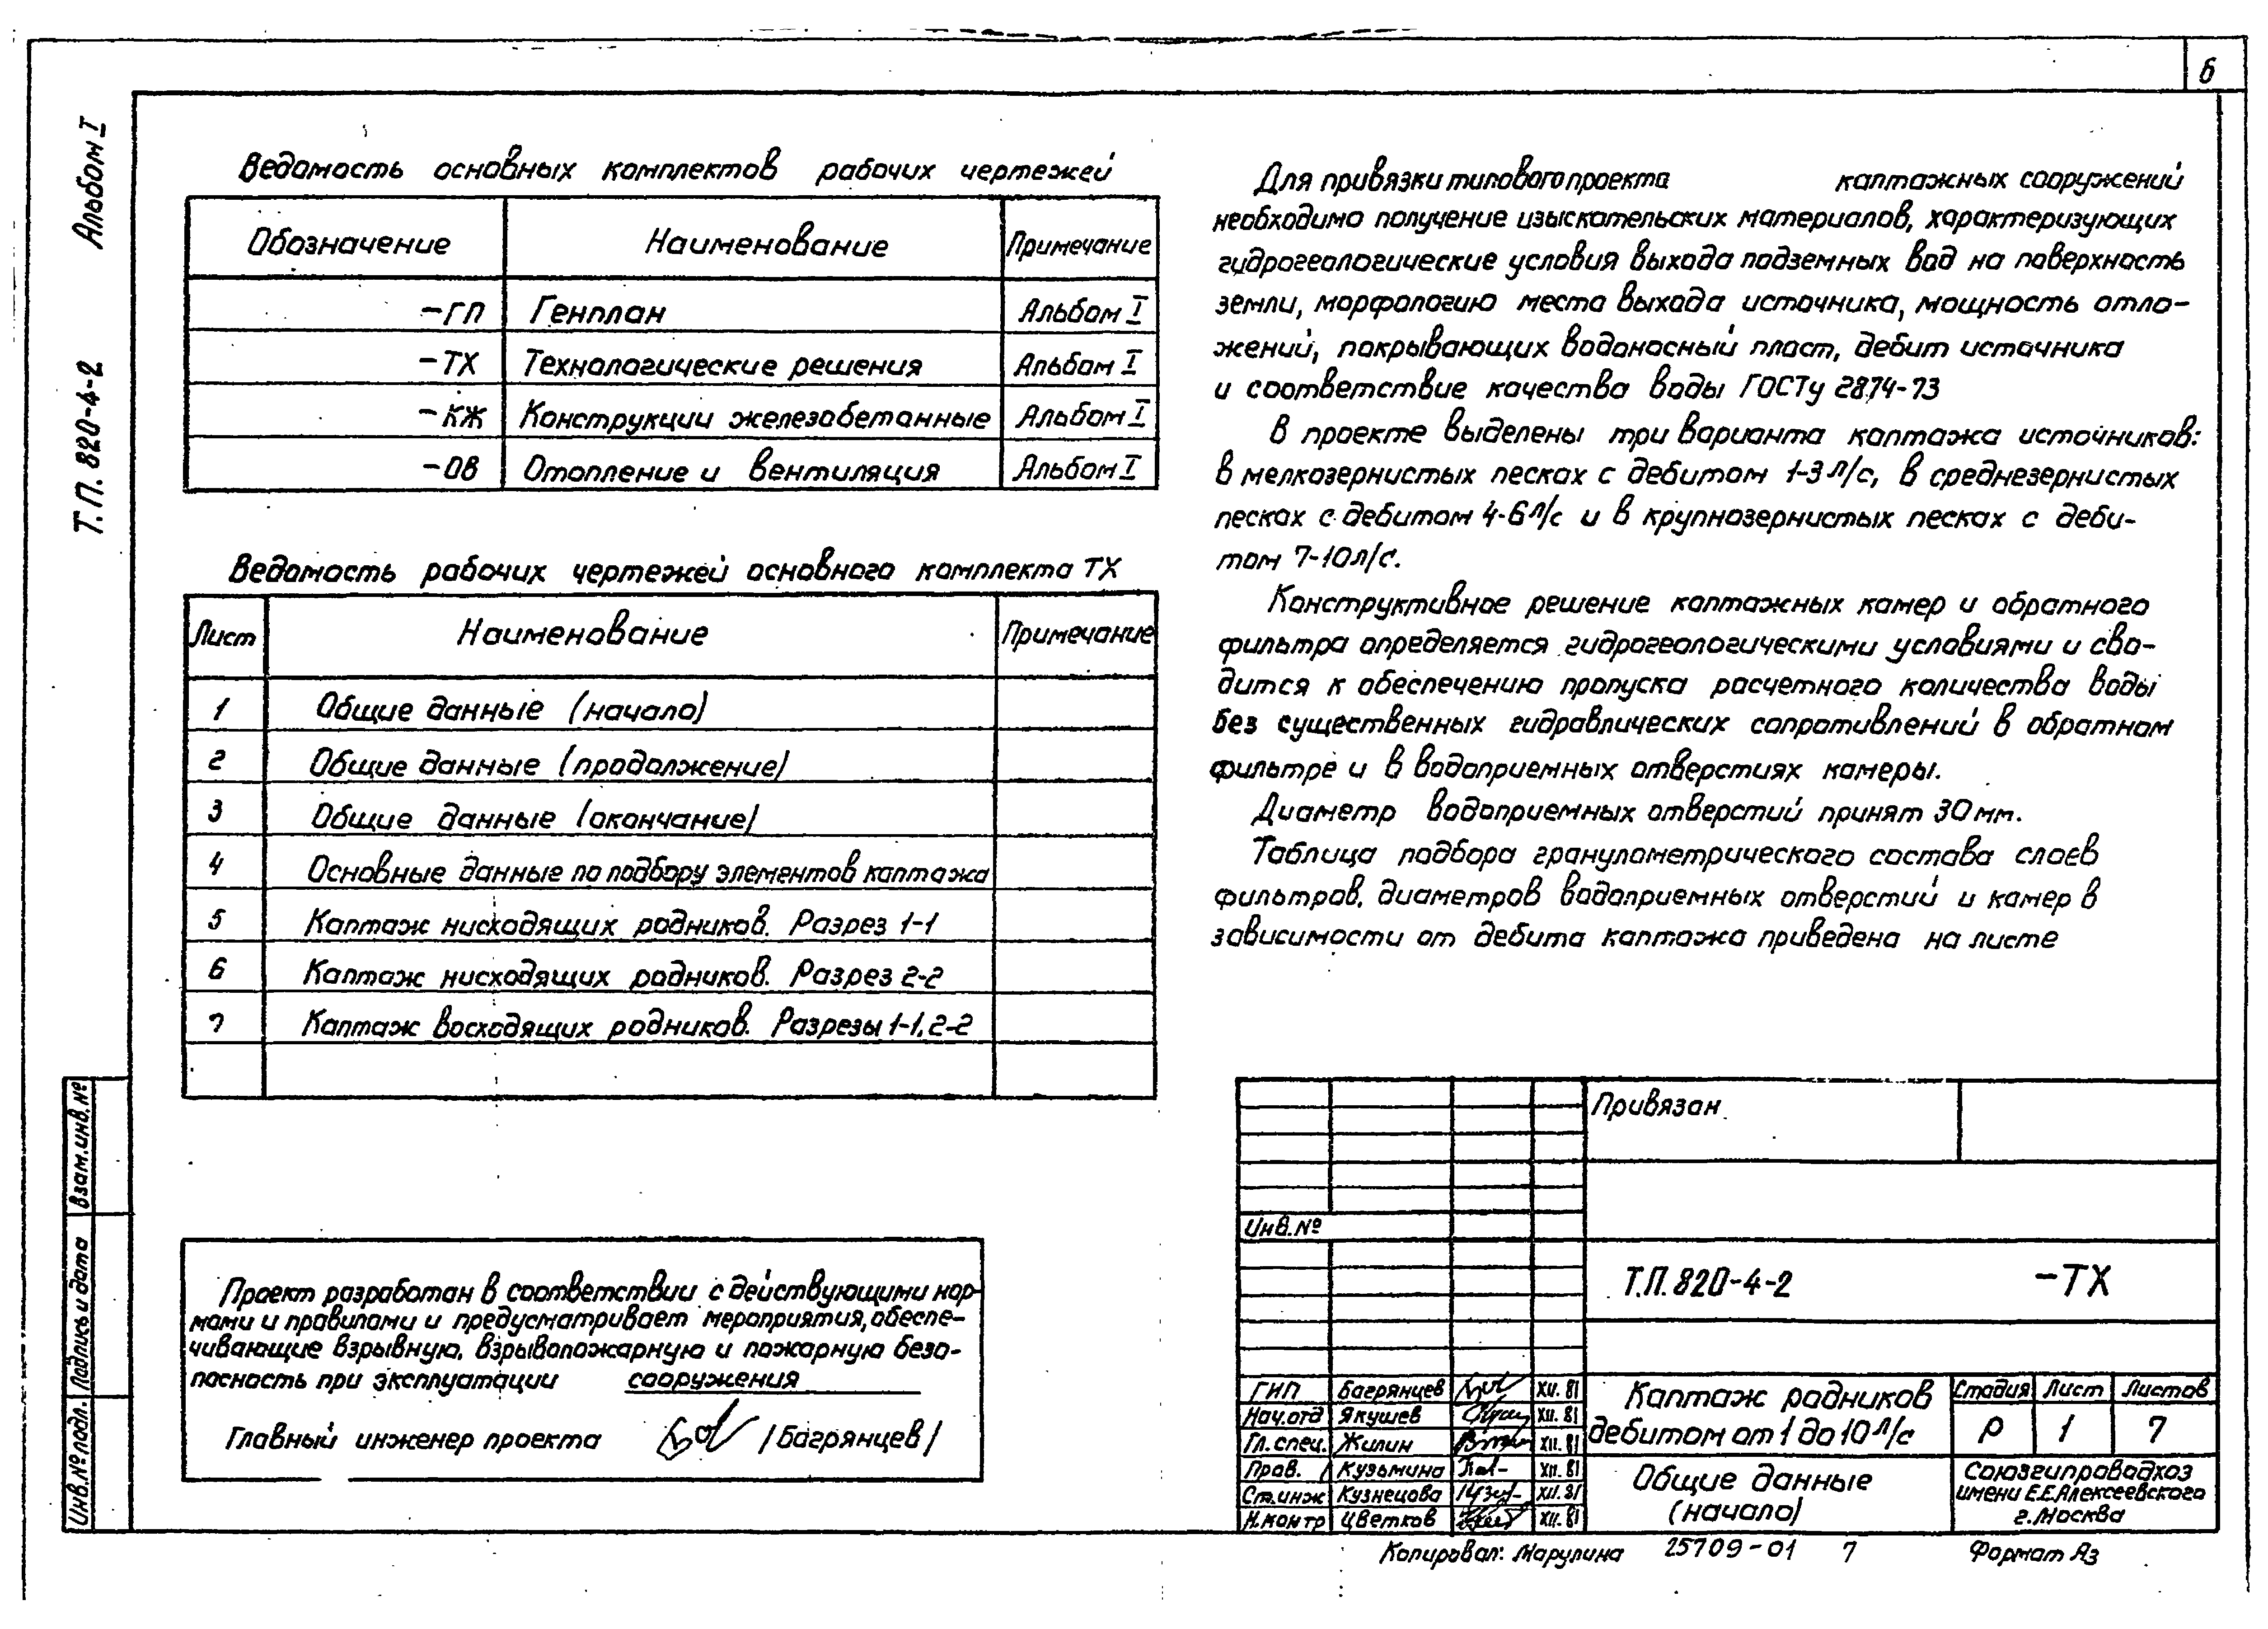 6
Альбом I
Т.П. 820-4-2
Ведомость основных комплектов рабочих чертежей
Обозначение Наименование Примечание
-ГП Генплан Альбом I
-ТХ Технологические решения Альбом I
-КЖ Конструкции железобетонные Альбом I
-ОВ Отопление и вентиляция Альбом I
Ведомость рабочих чертежей основного комплекта ТХ
Лист Наименование Примечание
1 Общие данные (начало)
2 Общие данные (продолжение)
3 Общие данные (окончание)
4 Основные данные по подбору элементов каптажа
5 Каптаж нисходящих родников. Разрез 1-1
6 Каптаж нисходящих родников. Разрез 2-2
7 Каптаж восходящих родников. Разрезы 1-1, 2-2
Проект разработан в соответствии с действующими нор-
мами и правилами и предусматривает мероприятия, обеспе-
чивающие взрывную, взрывопожарную и пожарную безо-
пасность при эксплуатации сооружения
Главный инженер проекта /Багрянцев/
Для привязки типового проекта каптажных сооружений
необходимо получение изыскательских материалов, характеризующих
гидрогеологические условия выхода подземных вод на поверхность
земли, морфологию места выхода источника, мощность отло-
жений, покрывающих водоносный пласт, дебит источника
и соответствие качества воды ГОСТу 2874-73
В проекте выделены три варианта каптажа источников:
в мелкозернистых песках с дебитом 1-3 л/с, в среднезернистых
песках с дебитом 4-6 л/с и в крупнозернистых песках с деби-
том 7-10 л/с.
Конструктивное решение каптажных камер и обратного
фильтра определяется гидрогеологическими условиями и сво-
дится к обеспечению пропуска расчетного количества воды
без существенных гидравлических сопротивлений в обратном
фильтре и в водоприемных отверстиях камеры.
Диаметр водоприемных отверстий принят 30 мм.
Таблица подбора гранулометрического состава слоев
фильтров, диаметров водоприемных отверстий и камер в
зависимости от дебита каптажа приведена на листе
Привязан
Инв.№
Т.П. 820-4-2 -ТХ
ГИП Багрянцев XII.81
Нач.отд Якушев XII.81
Гл. спец. Жилин XII.81
Пров. Кузьмина XII.81
Ст.инж Кузнецова XII.81
Н.контр Цветков XII.81
Каптаж родников
дебитом от 1 до 10 л/с
Стадия Лист Листов
Р 1 7
Общие данные
(начало)
Союзгипроводхоз
имени Е.Е.Алексеевского
г.Москва
Взам.инв.№
Подпись и дата
Инв.№ подл.
Копировал: Марулина 25709-01 7 Формат А3